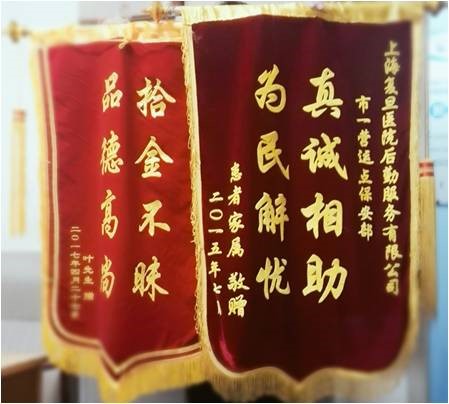 上海复旦医院后勤服务有限公司
市一营运点保安部
真诚相助
为民解忧
患者家属 敬赠
二〇一五年七
拾金不昧
品德高尚
叶先生 赠
二〇一七年四月二十七日